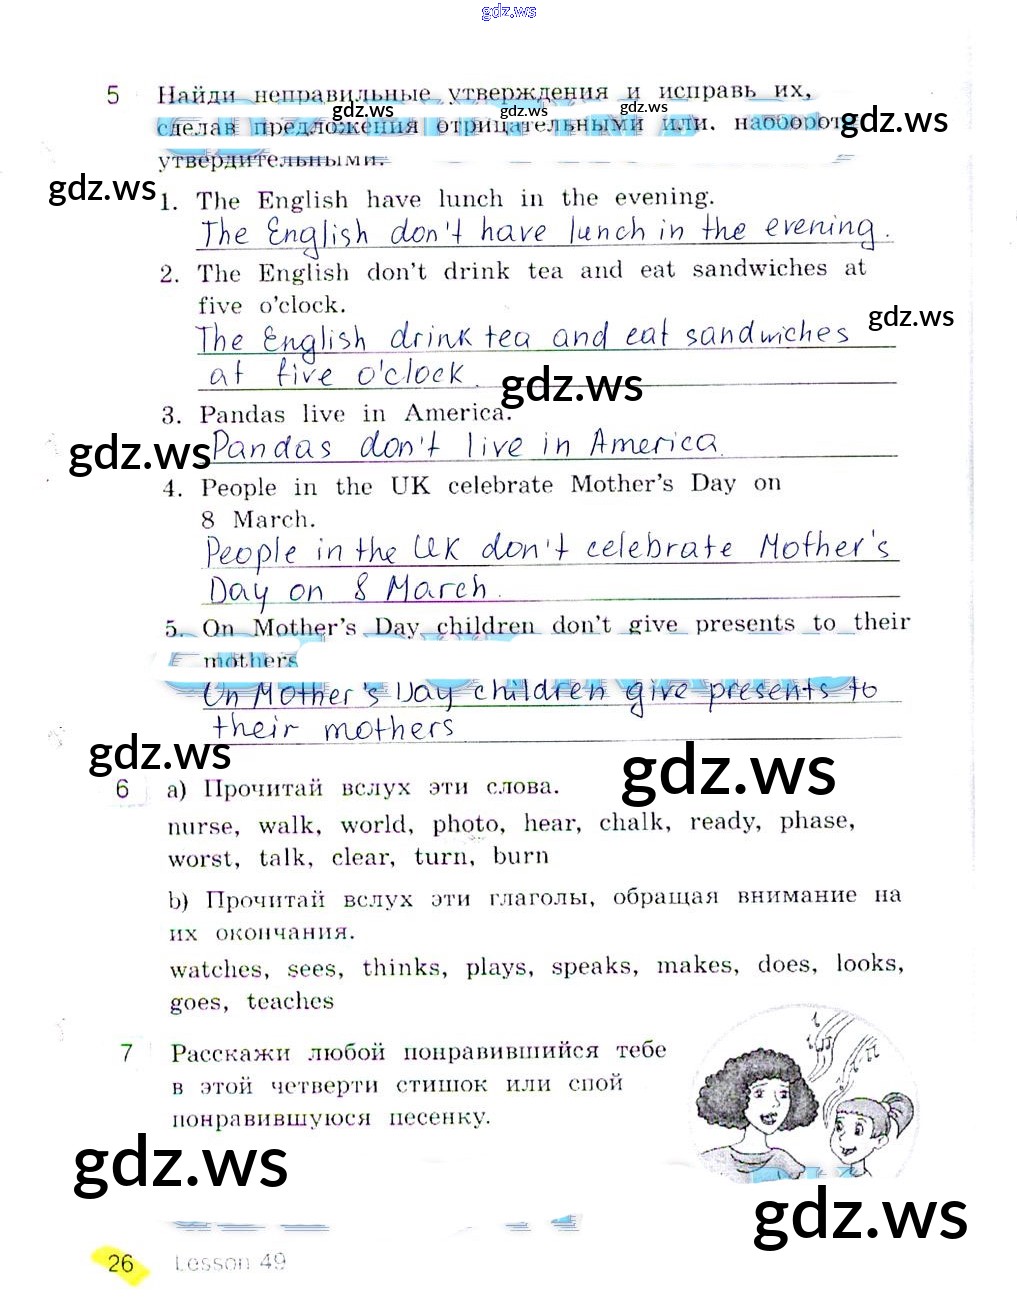 gdz.ws
5 Найди неправильные утверждения и исправь их,
gdz.ws gdz.ws gdz.ws
сделав предложения отрицательными или, наоборот, gdz.ws
утвердительными.
gdz.ws
1. The English have lunch in the evening.
The English don't have lunch in the evening.
2. The English don't drink tea and eat sandwiches at
five o'clock.
gdz.ws
The English drink tea and eat sandwiches
at five o'clock.
gdz.ws
3. Pandas live in America.
gdz.ws
Pandas don't live in America.
4. People in the UK celebrate Mother's Day on
8 March.
People in the UK don't celebrate Mother's
Day on 8 March.
5. On Mother's Day children don't give presents to their
mothers
On Mother's Day children give presents to
their mothers
gdz.ws
gdz.ws
6 a) Прочитай вслух эти слова.
nurse, walk, world, photo, hear, chalk, ready, phase,
worst, talk, clear, turn, burn
b) Прочитай вслух эти глаголы, обращая внимание на
их окончания.
watches, sees, thinks, plays, speaks, makes, does, looks,
goes, teaches
7 Расскажи любой понравившийся тебе
в этой четверти стишок или спой
понравившуюся песенку.
gdz.ws
gdz.ws
26 Lesson 49